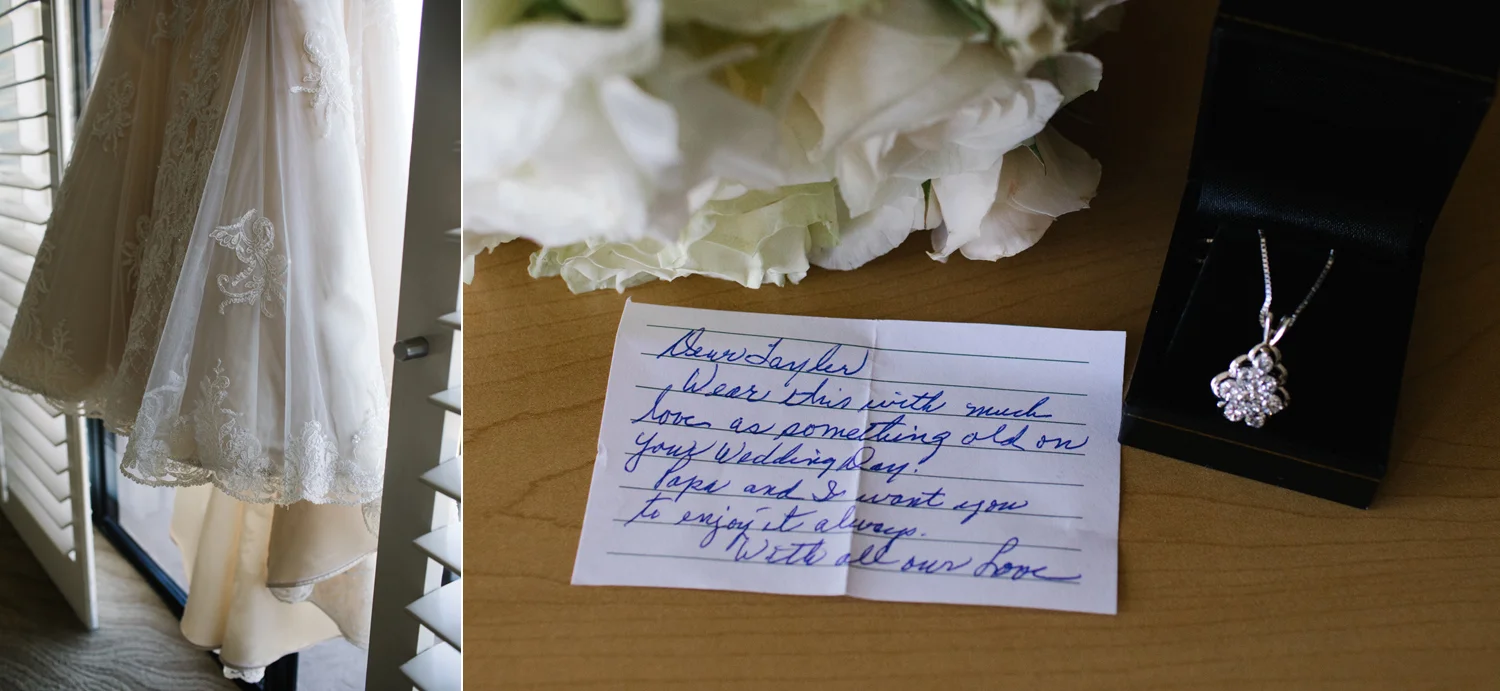 Dear Tayler
Wear this with much
love as something old on
your Wedding Day.
Papa and I want you
to enjoy it always.
With all our Love